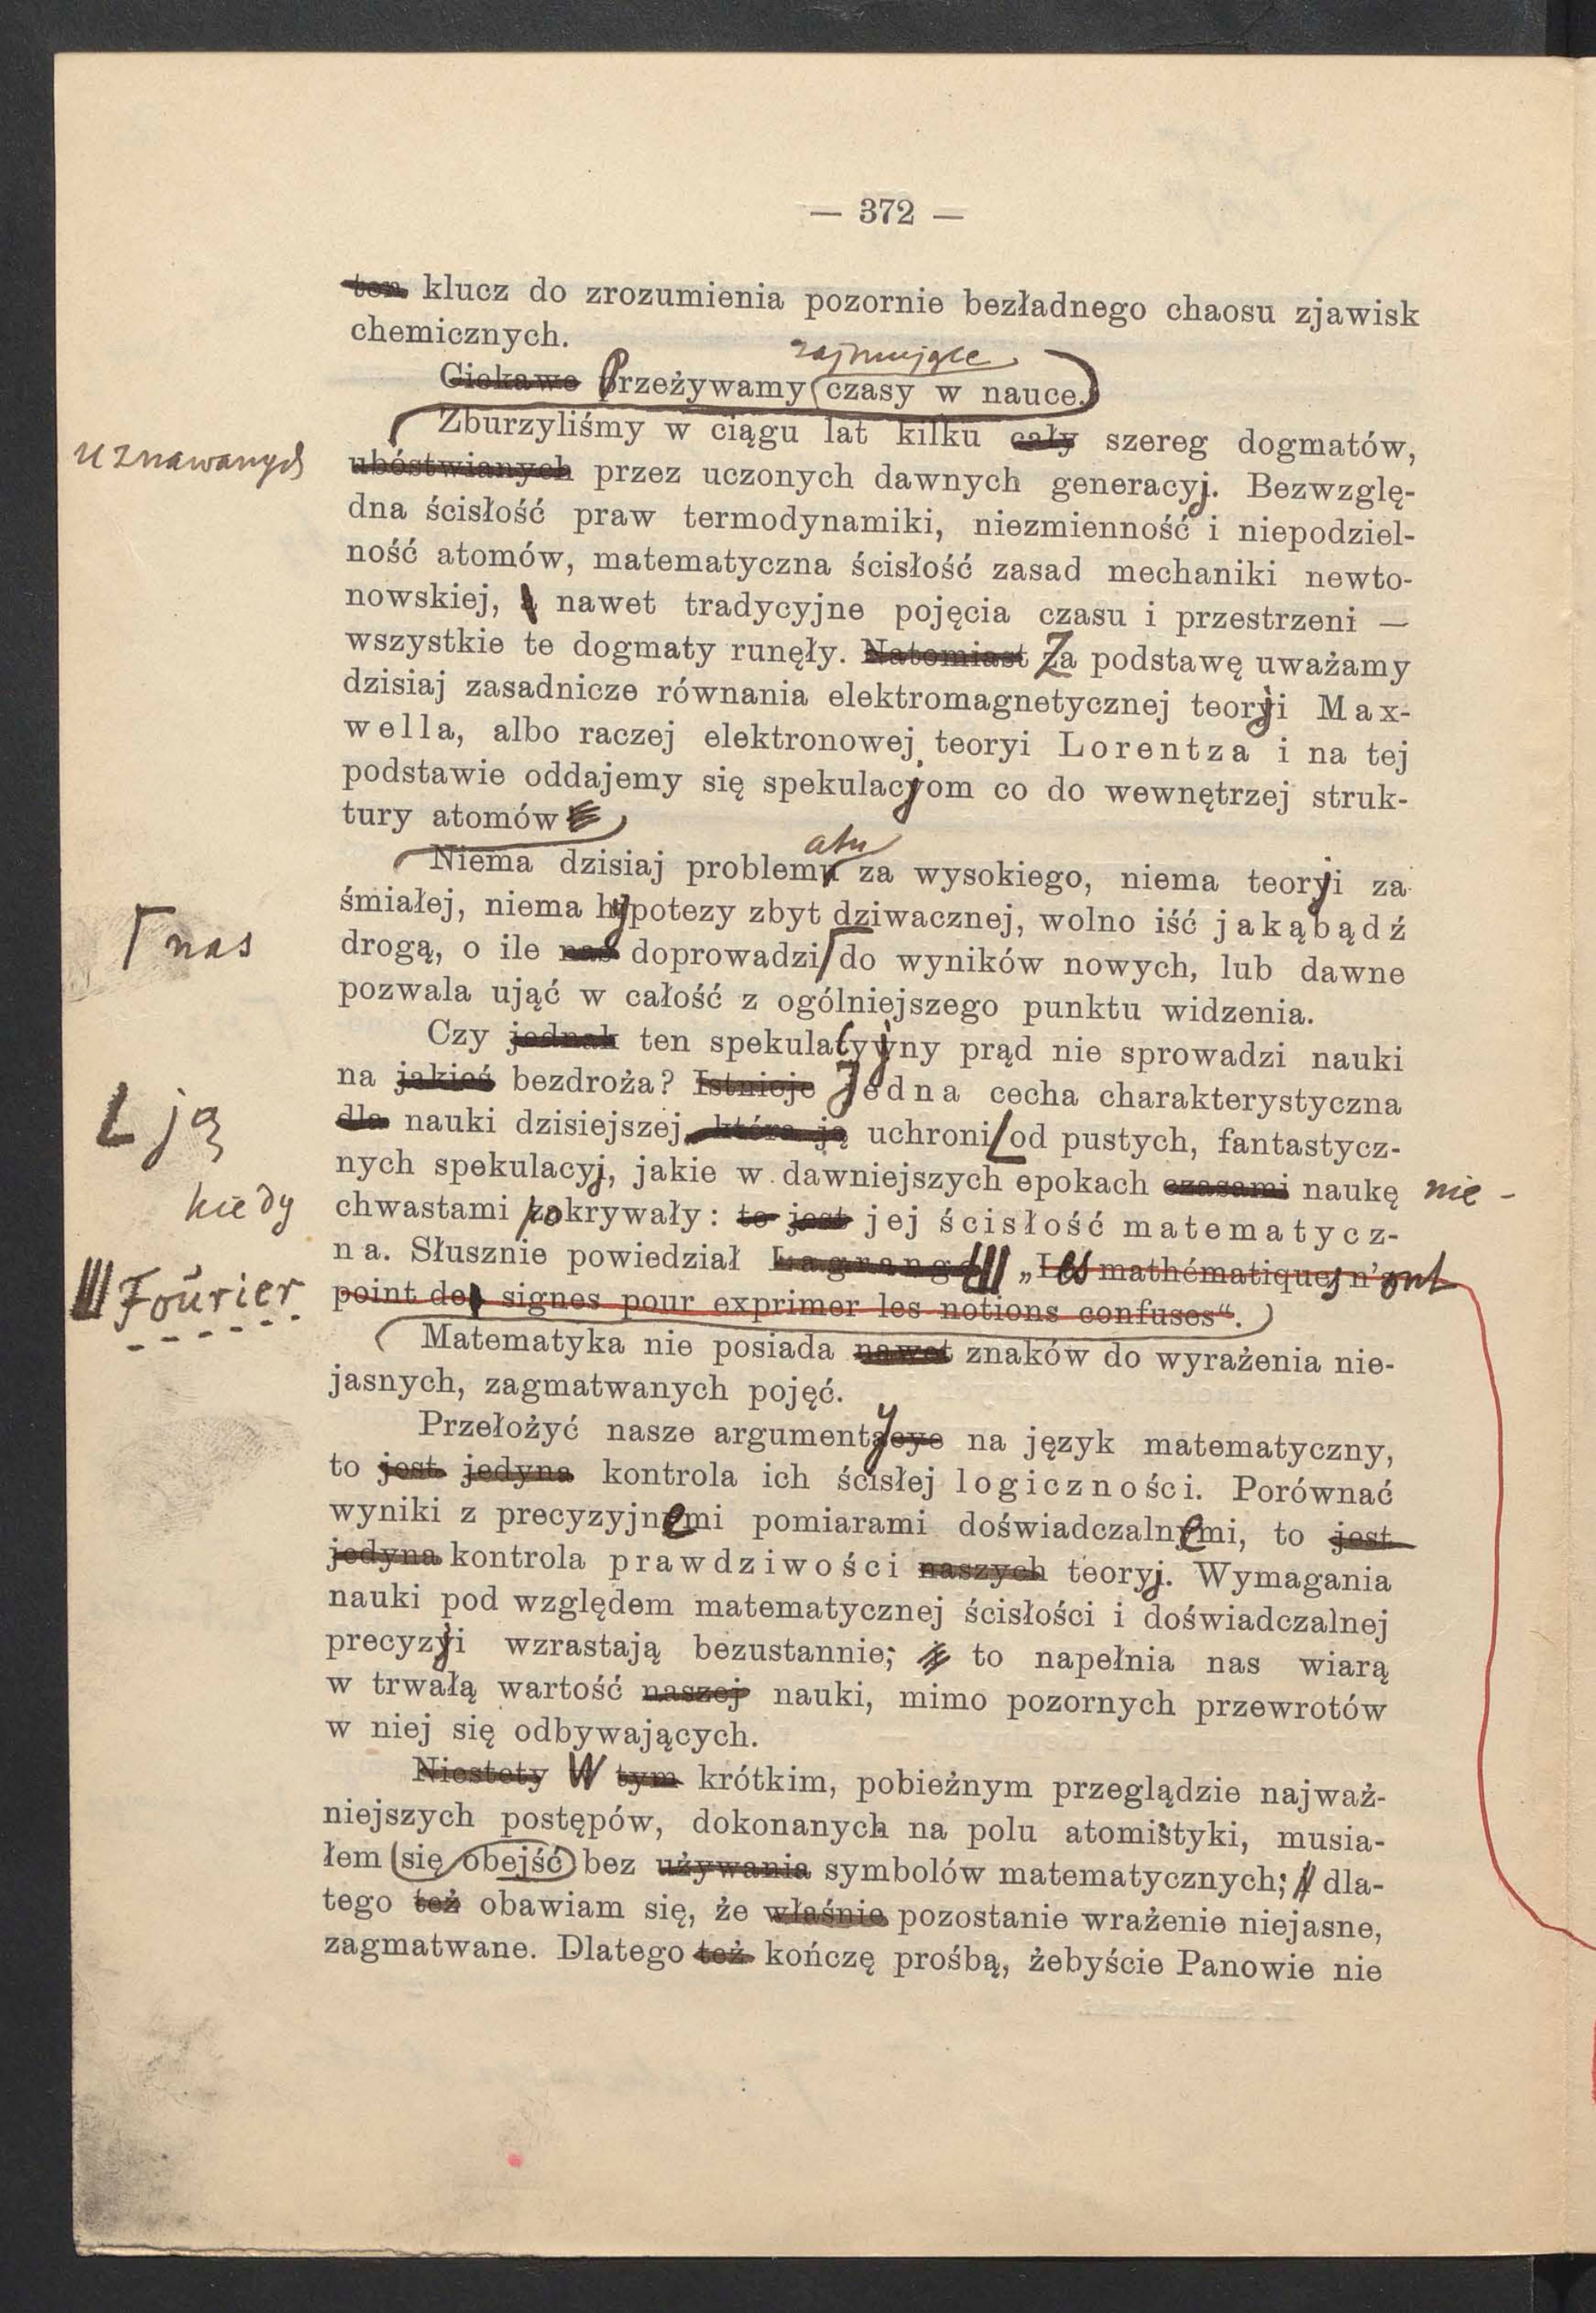 — 372 —
ten klucz do zrozumienia pozornie bezładnego chaosu zjawisk
chemicznych.
zajmujące
Ciekawe Przeżywamy czasy w nauce.
Zburzyliśmy w ciągu lat kilku cały szereg dogmatów,
uznawanych
ubóstwianych przez uczonych dawnych generacyj. Bezwzglę-
dna ścisłość praw termodynamiki, niezmienność i niepodziel-
ność atomów, matematyczna ścisłość zasad mechaniki newto-
nowskiej, nawet tradycyjne pojęcia czasu i przestrzeni —
wszystkie te dogmaty runęły. Natomiast Za podstawę uważamy
dzisiaj zasadnicze równania elektromagnetycznej teorji Max-
wella, albo raczej elektronowej teoryi Lorentza i na tej
podstawie oddajemy się spekulacjom co do wewnętrzej struk-
tury atomów
atu
Niema dzisiaj problemu za wysokiego, niema teorji za
śmiałej, niema hypotezy zbyt dziwacznej, wolno iść jakąbądź
nas
drogą, o ile nas doprowadzi do wyników nowych, lub dawne
pozwala ująć w całość z ogólniejszego punktu widzenia.
Czy jednak ten spekulacyjny prąd nie sprowadzi nauki
na jakieś bezdroża? Istnieje Jedna cecha charakterystyczna
ją
dla nauki dzisiejszej, która ją uchroni od pustych, fantastycz-
nych spekulacyj, jakie w dawniejszych epokach czasami naukę nie-
kiedy
chwastami pokrywały: to jest jej ścisłość matematycz-
na. Słusznie powiedział Lagrange „Les mathématiques n'ont
Fourier
point de signes pour exprimer les notions confuses“.
Matematyka nie posiada nawet znaków do wyrażenia nie-
jasnych, zagmatwanych pojęć.
Przełożyć nasze argumenty na język matematyczny,
to jest jedyna kontrola ich ścisłej logiczności. Porównać
wyniki z precyzyjnemi pomiarami doświadczalnemi, to jest
jedyna kontrola prawdziwości naszych teoryj. Wymagania
nauki pod względem matematycznej ścisłości i doświadczalnej
precyzji wzrastają bezustannie; to napełnia nas wiarą
w trwałą wartość naszej nauki, mimo pozornych przewrotów
w niej się odbywających.
Niestety W tym krótkim, pobieżnym przeglądzie najważ-
niejszych postępów, dokonanych na polu atomistyki, musia-
łem się obejść bez używania symbolów matematycznych; dla-
tego też obawiam się, że właśnie pozostanie wrażenie niejasne,
zagmatwane. Dlatego też kończę prośbą, żebyście Panowie nie